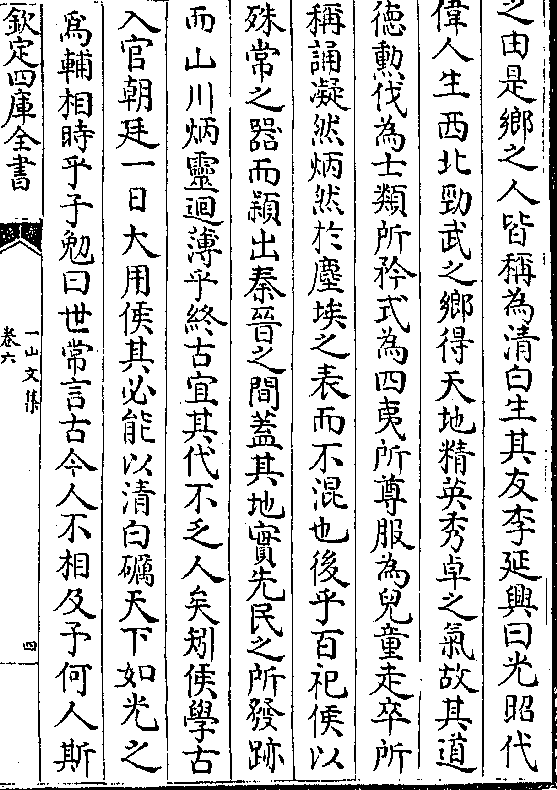 之由是鄉之人皆稱為清白生其友李延興曰光昭代
偉人生西北勁武之鄉得天地精英秀卓之氣故其道
徳勲伐為士類所矜式為四夷所尊服為兒童走卒所
稱誦凝然炳然於塵埃之表而不混也後乎百祀侯以
殊常之器而頴出秦晉之間蓋其地實先民之所發跡
而山川炳靈迴薄乎終古宜其代不乏人矣矧侯學古
入官朝廷一日大用侯其必能以清白礪天下如光之
為輔相時乎子勉曰世常言古今人不相及予何人斯
欽定四庫全書
一山文集
卷六
四